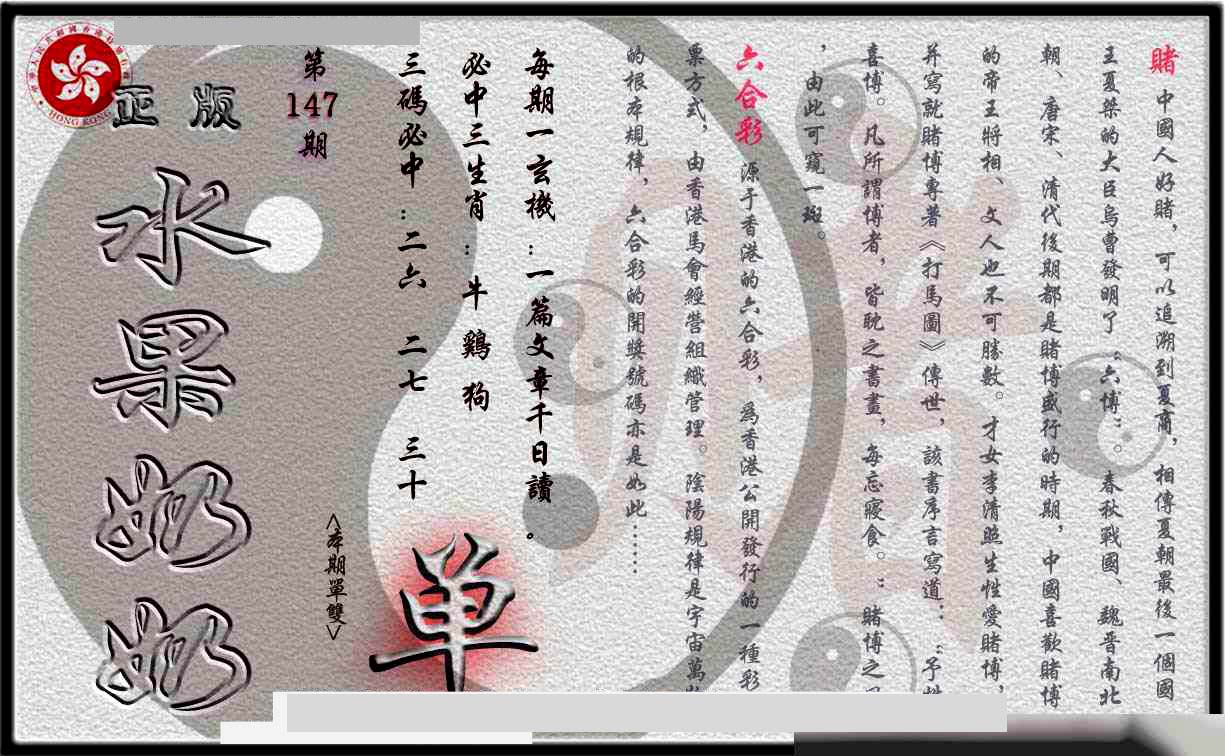 賭 中國人好賭，可以追溯到夏商，相傳夏朝最後一個國
王夏桀的大臣烏曹發明了“六博”。春秋戰國、魏晋南北
朝、唐宋、清代後期都是賭博盛行的時期，中國喜歡賭博
的帝王將相、文人也不可勝數。才女李清照生性愛賭博，
并寫就賭博專著《打馬圖》傳世，該書序言寫道：“予性
喜博。凡所謂博者，皆耽之書畫，每忘寢食。”賭博之風
，由此可窺一斑。
六合彩 源于香港的六合彩，為香港公開發行的一種彩
票方式，由香港馬會經營組織管理。陰陽規律是宇宙萬物
的根本規律，六合彩的開獎號碼亦是如此……
每期一玄機：一篇文章千日讀。
必中三生肖：牛 鷄 狗
三碼必中：二六 二七 三十
单
<本期單雙>
第147期
正版
水果奶奶
HONG KONG